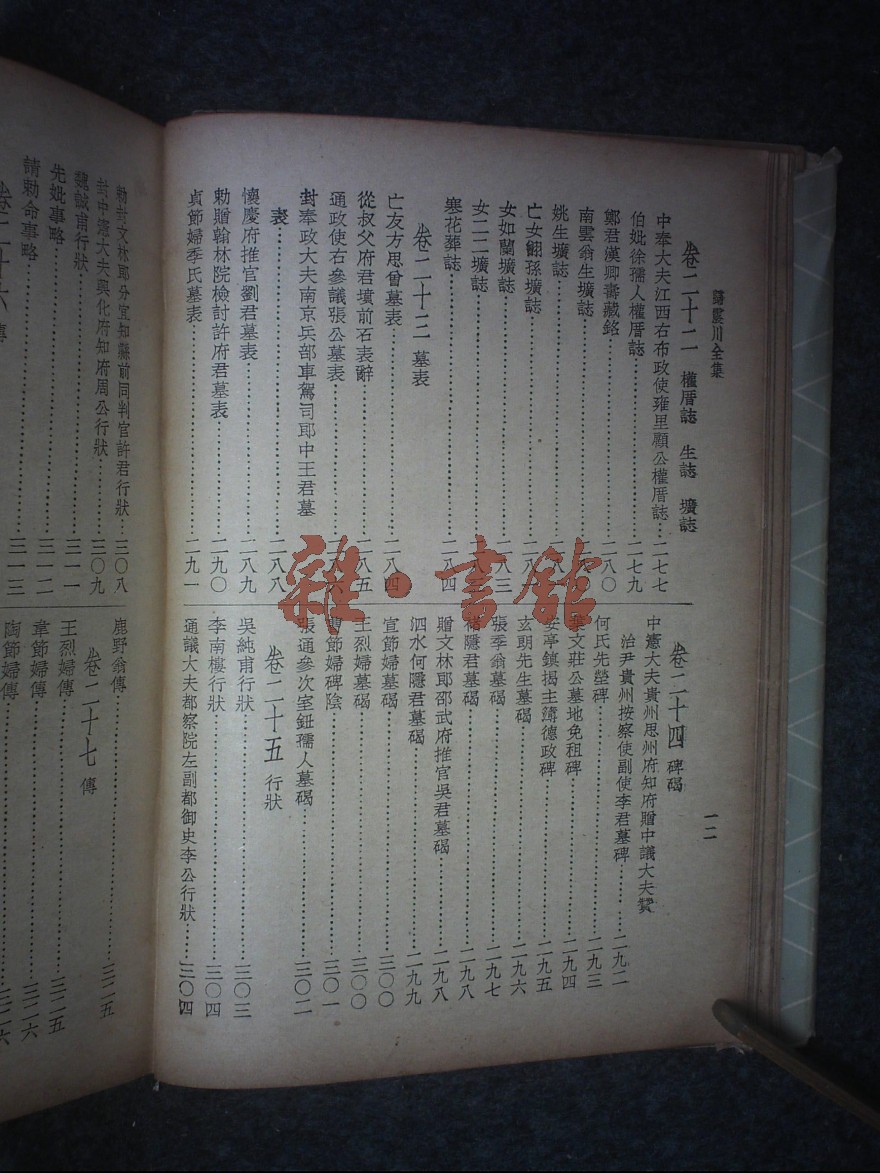 歸震川全集
一二
卷二十二 權厝誌 生誌 壙誌
中奉大夫江西右布政使雍里顧公權厝誌……二七七
伯妣徐孺人權厝誌……二七九
鄭君漢卿壽藏銘……二八〇
南雲翁生壙誌……二八〇
姚生壙誌……二八
亡女翻孫壙誌……二八
女如蘭壙誌……二八三
女二二壙誌……二八三
寒花葬誌……二八四
卷二十三 墓表
亡友方思曾墓表……二八四
從叔父府君墳前石表辭……二八五
通政使右參議張公墓表……二八六
封奉政大夫南京兵部車駕司郎中王君墓
表……二八八
懷慶府推官劉君墓表……二八九
勅贈翰林院檢討許府君墓表……二九〇
貞節婦季氏墓表……二九一
卷二十四 碑碣
中憲大夫貴州思州府知府贈中議大夫贊
治尹貴州按察使副使李君墓碑……二九二
何氏先塋碑……二九三
葉文莊公墓地免租碑……二九四
安亭鎮揭主簿德政碑……二九五
玄朗先生墓碣……二九六
張季翁墓碣……二九七
隱君墓碣……二九八
贈文林郎邵武府推官吳君墓碣……二九八
泗水何隱君墓碣……二九九
宣節婦墓碣……三〇〇
王烈婦墓碣……三〇〇
曹節婦碑陰……三〇一
張通參次室鈕孺人墓碣……三〇二
卷二十五 行狀
吳純甫行狀……三〇三
李南樓行狀……三〇四
通議大夫都察院左副都御史李公行狀……三〇四
勅封文林郎分宜知縣前同判官許君行狀……三〇八
封中憲大夫興化府知府周公行狀……三〇九
魏誠甫行狀……三一一
先妣事略……三一二
請勅命事略……三一三
卷二十六 傳
鹿野翁傳……三二五
卷二十七 傳
王烈婦傳……三二五
章節婦傳……三二六
陶節婦傳……三二六
雜·書館